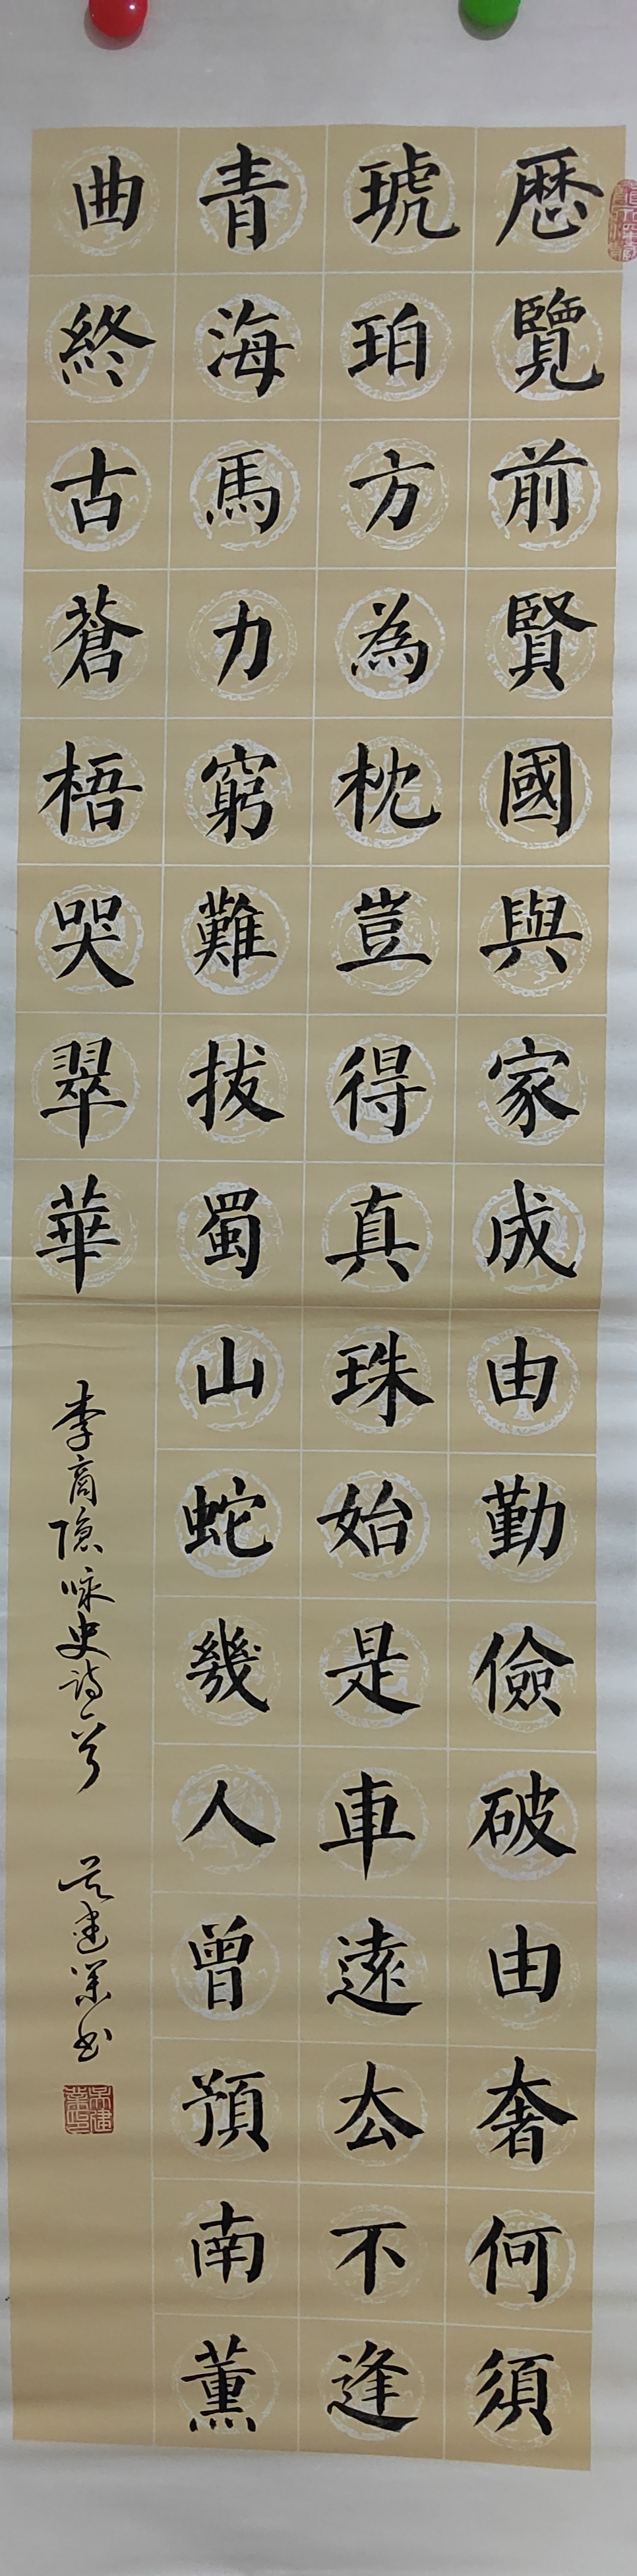 厯覽前賢國與家成由勤儉破由奢何須
琥珀方為枕豈得真珠始是車遠厺不逢
青海馬力窮難拔蜀山蛇幾人曾預南薰
曲終古蒼梧哭翠華
李商隱咏史詩一首 吴建業书